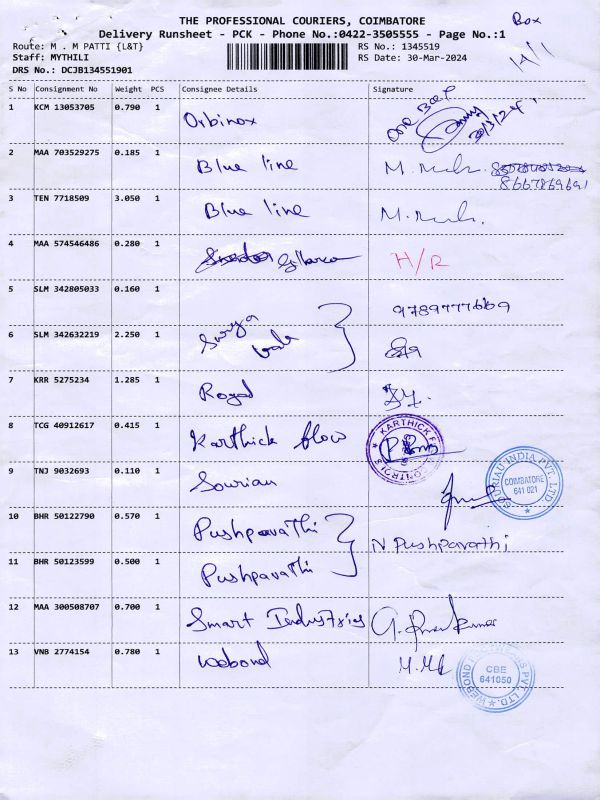 THE PROFESSIONAL COURIERS, COIMBATORE
Box
Delivery Runsheet - PCK - Phone No.:0422-3505555 - Page No.:1
Route: M . M PATTI {L&T}
RS No.: 1345519
Staff: MYTHILI
RS Date: 30-Mar-2024
14/1
DRS No.: DCJB134551901
S No Consignment No Weight PCS Consignee Details Signature
1 KCM 13053705 0.790 1 Orbinox
one Box
30/3/24
2 MAA 703529275 0.185 1 Blue line M.
8667869691
3 TEN 7718509 3.050 1 Blue line M.
4 MAA 574546486 0.280 1 H/R
5 SLM 342805033 0.160 1 9789777669
6 SLM 342632219 2.250 1 Surya
7 KRR 5275234 1.285 1 Royal
8 TCG 40912617 0.415 1 Karthick flow KARTHICK CONTROLS
9 TNJ 9032693 0.110 1 Sourian
SOURIAU INDIA PVT. LTD.
COIMBATORE
641 021
10 BHR 50122790 0.570 1 Pushpavathi N Pushpavathi
11 BHR 50123599 0.500 1 Pushpavathi
12 MAA 300508707 0.700 1 Smart Industries
13 VNB 2774154 0.780 1 Webond
WEBOND PVT. LTD.
CBE
641050